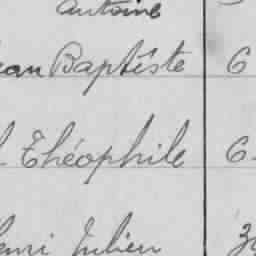 Antoine
ean Baptiste 6
l Théophile 6
enri Julien 3